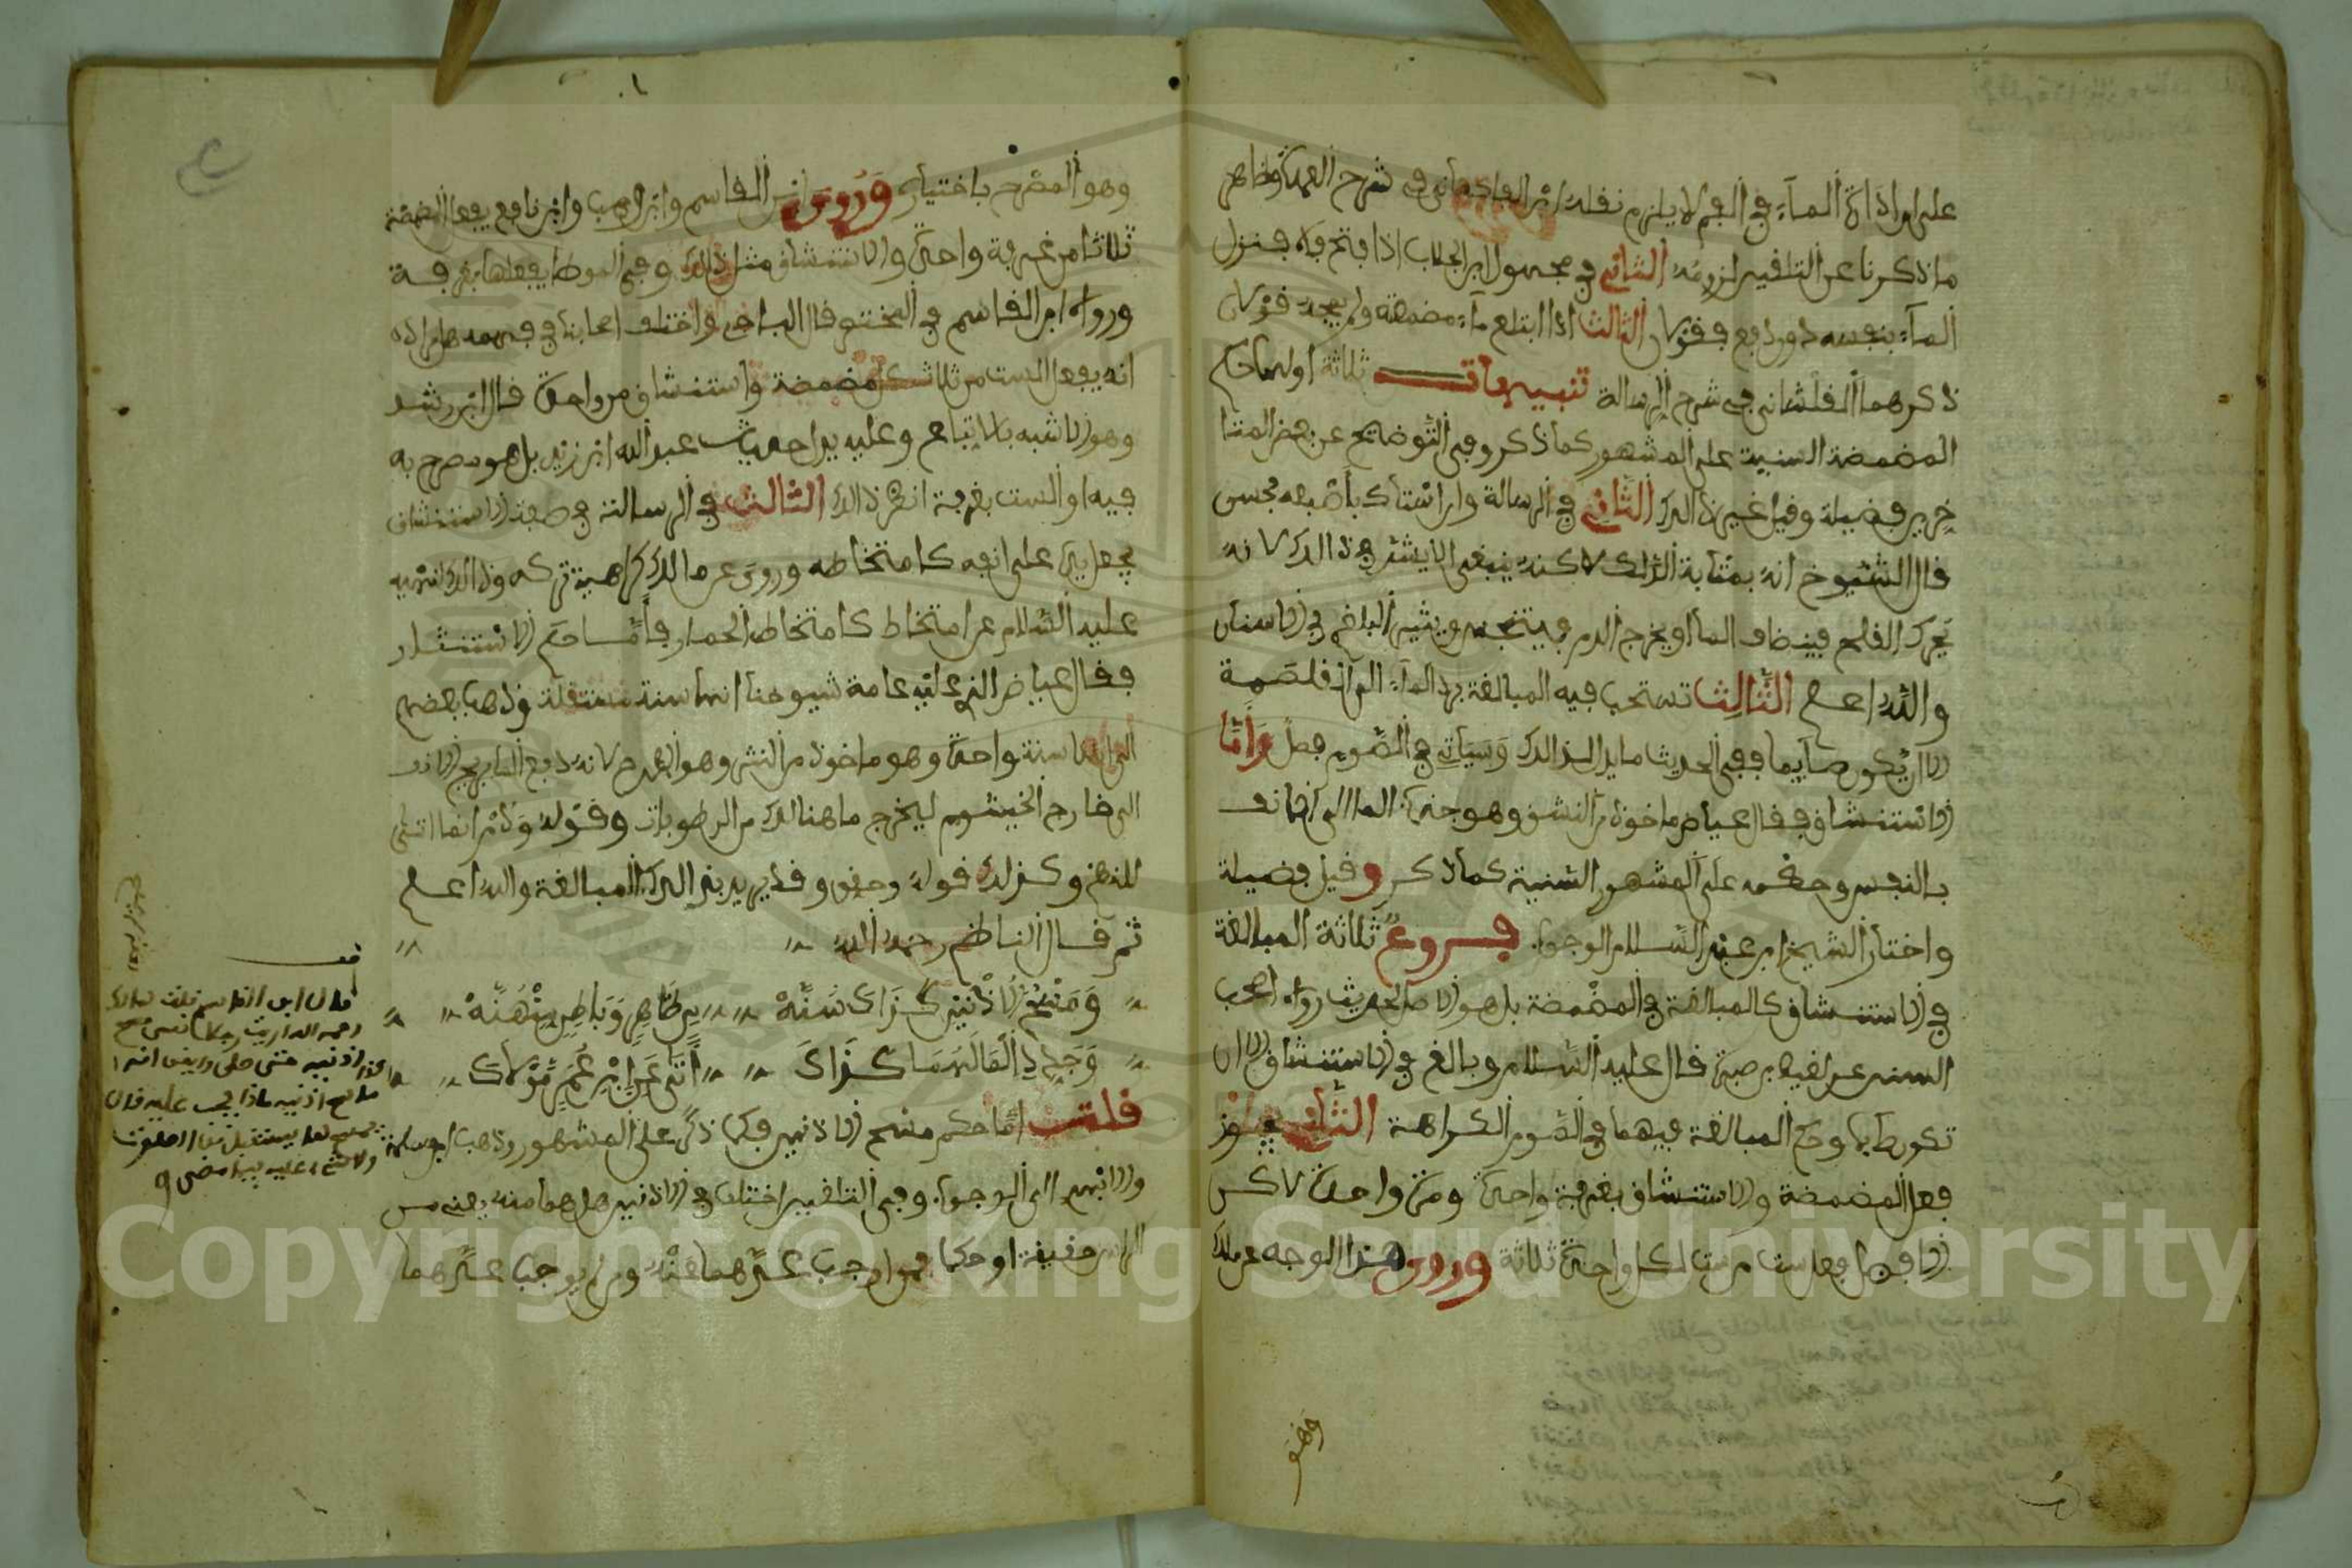 على ان اذاقة المآء في الفم لا يلزم نقله ابن الفاكهاني في شرح العمدة وظاهر
ما ذكرنا عن التلقين لزومه الثاني في محصول ابن الجلاب اذا فتح فاه فنزل
المآء بنفسه دون دفع فقولان الثالث اذا ابتلع مآء مضمضة ولم يمجه فقولان
ذكرهما القلشاني في شرح الرسالة تنبيهات ثلاثة اولها حكم
المضمضة السنية على المشهور كما ذكر وفي التوضيح عن بعض المتأ
خرين فضيلة وقيل غير ذالك الثاني في الرسالة وان استاك باصبعه فحسن
قال الشيوخ انه بمثابة الدلك لاكنه ينبغي الا يشتد في ذالك لانه
يحرك القلح فينضاف المآ او يخرج الدم فيتنجس ويثير البلغم في الاسنان
والله اعلم الثالث تستحب فيه المبالغة برد المآء الى الغلصمة
الا ان يكون صآيما ففي الحديث ما يدل لذالك وسيأتي في الصوم فصل وأما
الاستنشاق فقال عياض ماخوذ من النشق وهو جذب الما الى الانف
بالنفس وحكمه على المشهور السنية كما ذكر وقيل فضيلة
واختار الشيخ ابن عبد السلام الوجوب فروع ثلاثة المبالغة
في الاستنشاق كالمبالغة في المضمضة بل هو الاصل لحديث رواه اصحب
السنن عن لقيط بن صبرة قال عليه السلام وبالغ في الاستنشاق الا ان
تكون صآيما وحكم المبالغة فيهما في الصوم الكراهة الثاني يجوز
فعل المضمضة والاستنشاق بغرفة واحدة ومرة واحدة لاكن
الافضل فعل ست مرات لكل واحدة ثلاثة وروى هذا الوجه عن ملك
وهو
وهو المصرح باختياره وروى ابن القاسم وابن وهب وابن نافع يفعل المضمضة
ثلاثا من غرفة واحدة والاستنشاق مثل ذالك وفي الموطإ يفعلها بغرفة
ورواه ابن القاسم في المختصر قال الباجي واختلف اصحابنا في فهمه هل اراد
انه يفعل الست من ثلاث كل مضمضة واستنشاق من واحدة قال ابن رشد
وهو الاشبه بالاتباع وعليه يدل حديث عبد الله ابن زيد بل هو مصرح به
فيه او الست بغرفة انظر ذالك الثالث في الرسالة في صفة الاستنشاق
يجعل يده على انفه كامتخاطه وروى عن مالك كراهية تركه وذالك لنهيه
عليه السلام عن امتخاط كامتخاط الحمار وامــا حكم الاستنثار
فقال عياض الذي عليه عامة شيوخنا انها سنة مستقلة وذهب بعضهم
الى انهما سنة واحدة وهو ماخوذ من النثر وهو الطرح لانه دفع المآ بريح الانف
الى خارج الخيشوم ليخرج ما هنالك من الرطوبات وقوله
للنظم وكذلك قوله وحقق وقد يريد بذالك المبالغة والله اعلم
ثم قال الناظم رحمه الله
ومسح الاذنين كذاك سنه من ظاهر وباطن منهنه
وجدد المآ لهما كذاك أتى عن ابن عمر مولاك
قلت اما حكم مسح الاذنين فكما ذكر على المشهور وذهب ابن مسلمة
والابهري الى الوجوب وفي التلقين اختلف في الاذنين هل هما منه يعني من
الراس حقيقة او حكما فمن اوجب عدهما منه ومن لم يوجب عدهما
قال ابن القاسم قلت لمالك
رحمه الله ارايت رجلا نسي مسح
اذنيه حتى صلى
مسح اذنيه ماذا يجب عليه قال
يمسحهما يستقبل من الصلوات
ولا شيء عليه فيما مضى